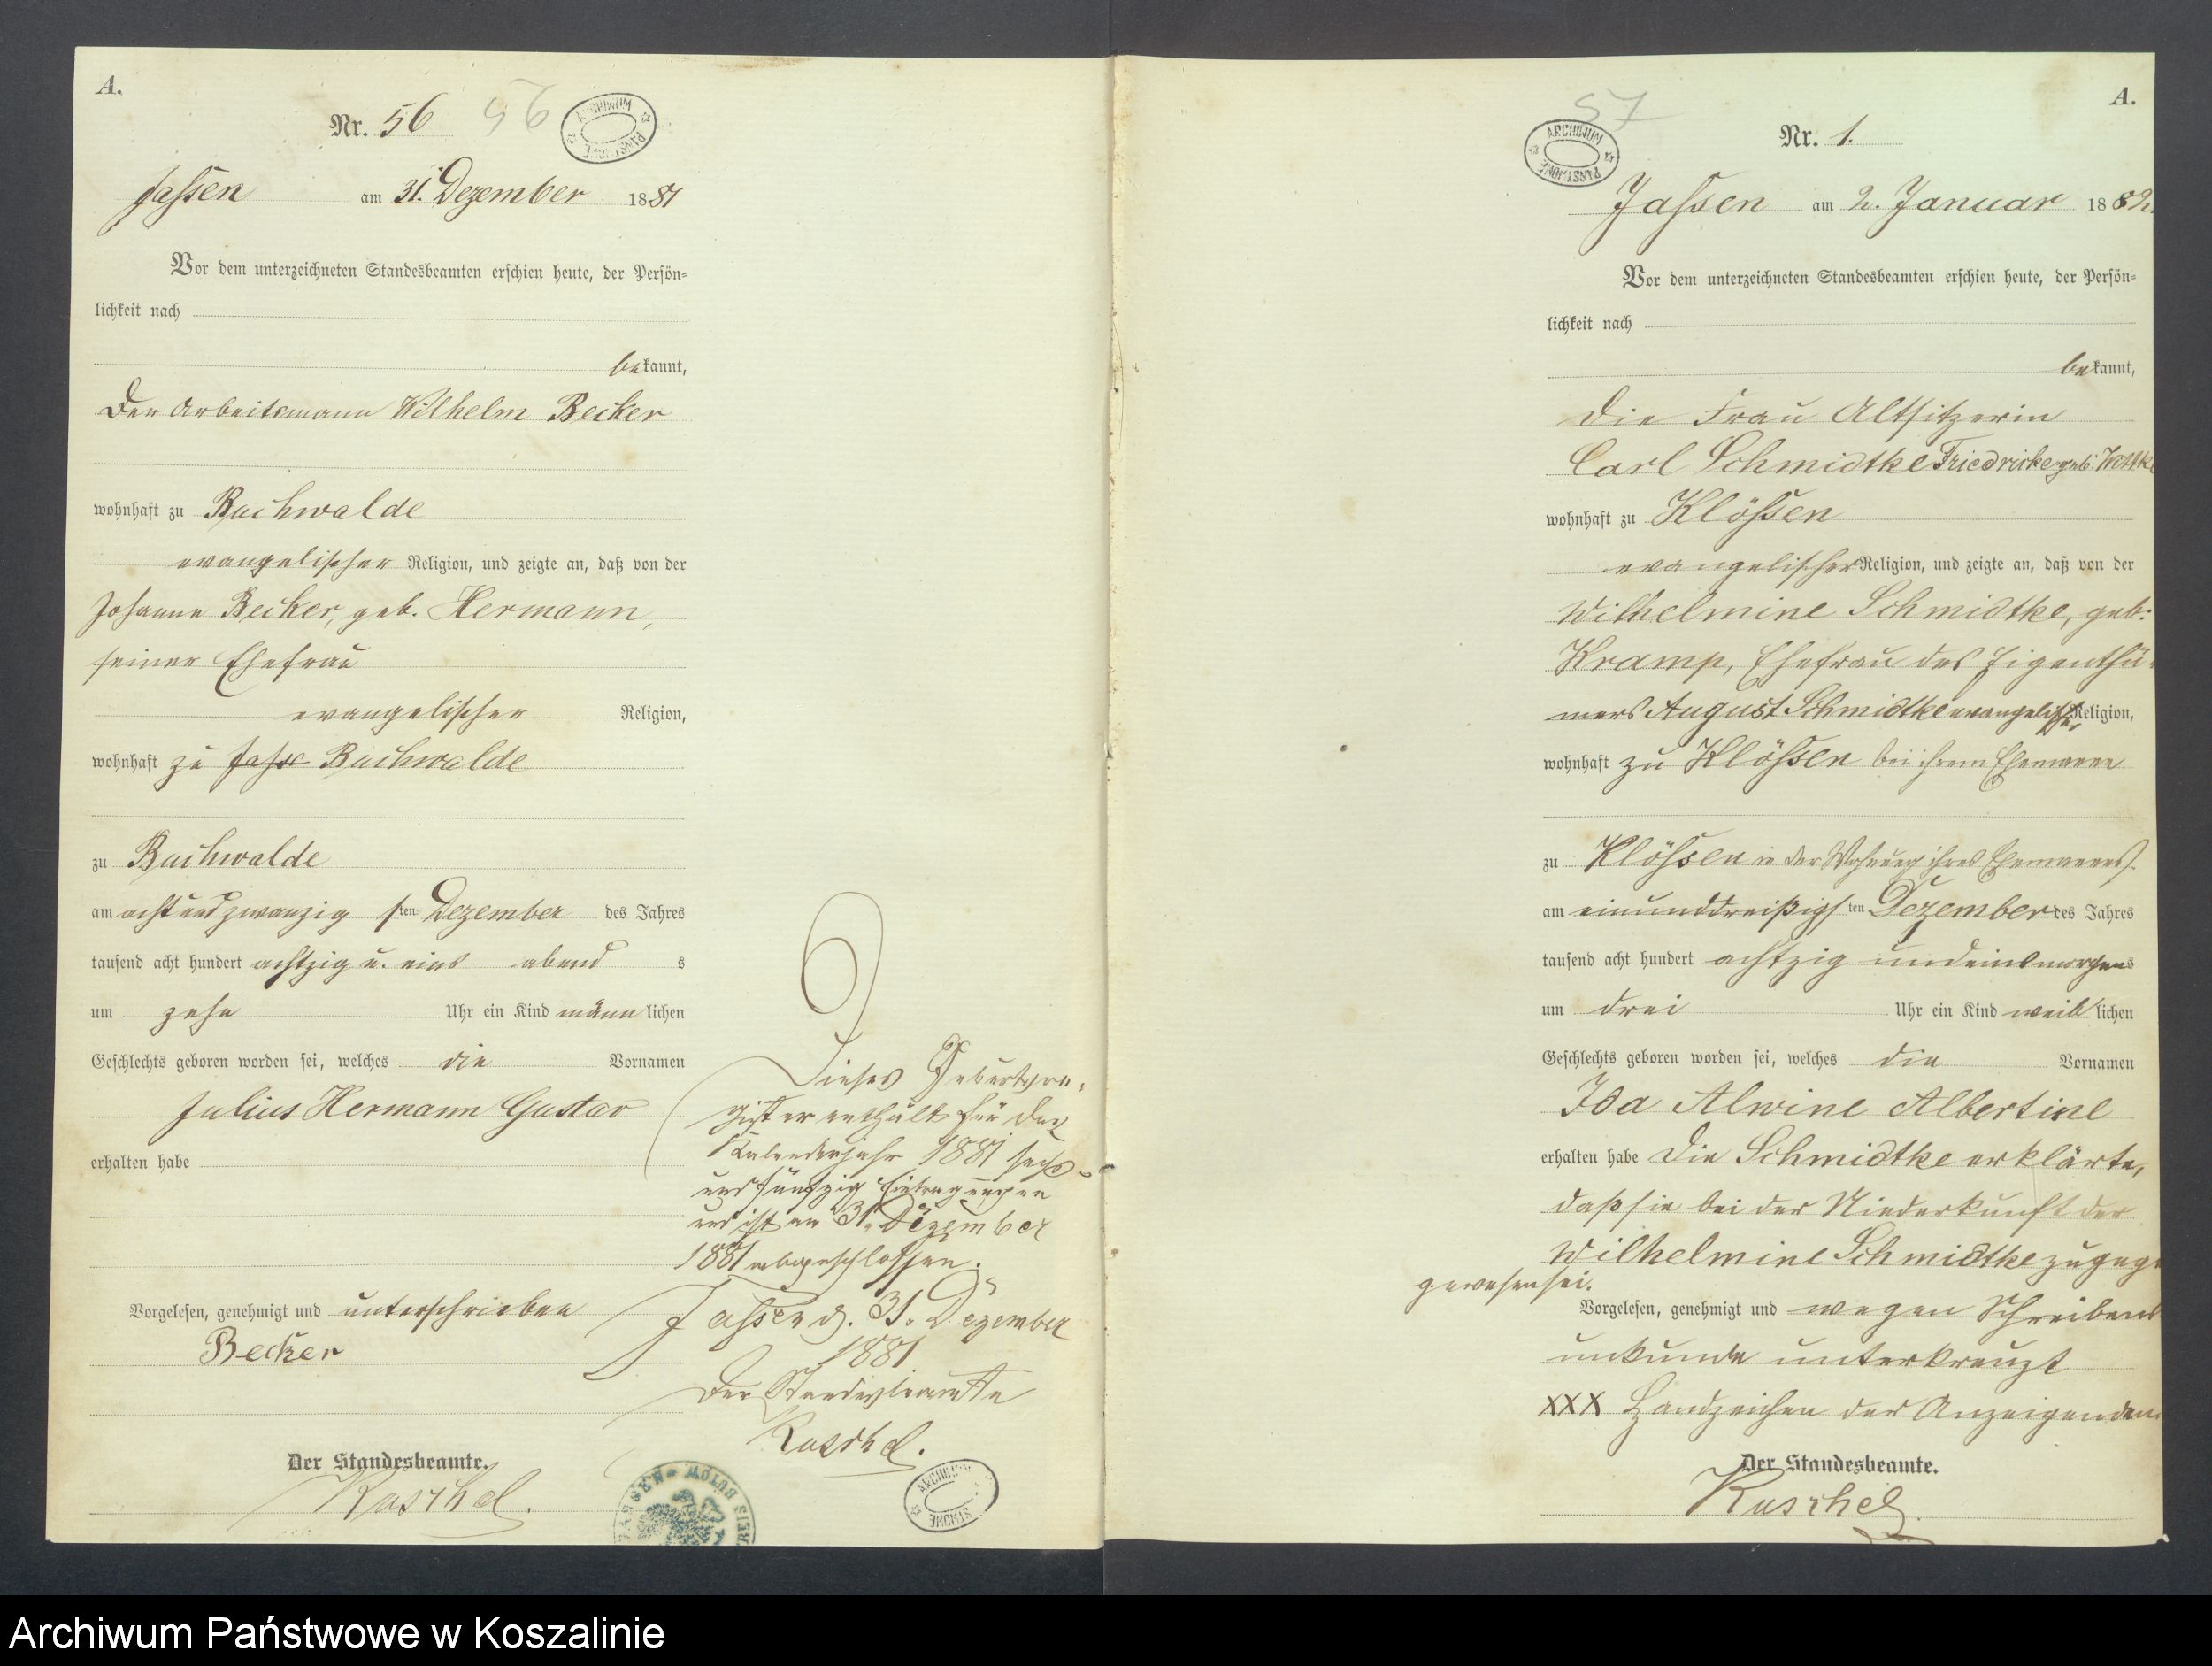 A.
Nr. 56 56
ARCHIWUM PAŃSTWOWE
Jassen am 31. Dezember 1881
Vor dem unterzeichneten Standesbeamten erschien heute, der Persön-
lichkeit nach
bekannt,
der Arbeitsmann Wilhelm Becker
wohnhaft zu Buchwalde
evangelischer Religion, und zeigte an, daß von der
Johanne Becker, geb. Hermann,
seiner Ehefrau
evangelischer Religion,
wohnhaft zu Jasse Buchwalde
zu Buchwalde
am acht und zwanzigsten Dezember des Jahres
tausend acht hundert achtzig u. eins abends
um zehn Uhr ein Kind männlichen
Geschlechts geboren worden sei, welches die Vornamen
Julius Hermann Gustav
erhalten habe
Vorgelesen, genehmigt und unterschrieben
Becker
Der Standesbeamte.
Kuschel.
Dieses Geburtsre-
gister enthält für das
Kalenderjahr 1881 sechs-
und fünfzig Eintragungen
und ist am 31. Dezember
1881 abgeschlossen.
Jassen d. 31. Dezember
1881
Der Standesbeamte
Kuschel.
JASSEN KREIS BÜTOW
ARCHIWUM PAŃSTWOWE
A.
57
ARCHIWUM PAŃSTWOWE
Nr. 1.
Jassen am 2. Januar 1882
Vor dem unterzeichneten Standesbeamten erschien heute, der Persön-
lichkeit nach
bekannt,
die Frau Altsitzerin
Carl Schmidtke Friedricke geb:
wohnhaft zu Klössen
evangelischer Religion, und zeigte an, daß von der
Wilhelmine Schmidtke, geb:
Kramp, Ehefrau des Eigenthü-
mers August Schmidtke evangelischer Religion,
wohnhaft zu Klössen bei ihrem Ehemann
zu Klössen in der Wohnung ihres Ehemannes.
am einunddreißigsten Dezember des Jahres
tausend acht hundert achtzig und eins morgens
um drei Uhr ein Kind weiblichen
Geschlechts geboren worden sei, welches die Vornamen
Ida Alwine Albertine
erhalten habe Die Schmidtke erklärte,
daß sie bei der Niederkunft der
Wilhelmine Schmidtke zugege
gewesen sei.
Vorgelesen, genehmigt und wegen Schreibens
unkunde unterkreuzt
XXX Handzeichen der Anzeigenden.
Der Standesbeamte.
Kuschel.
Archiwum Państwowe w Koszalinie